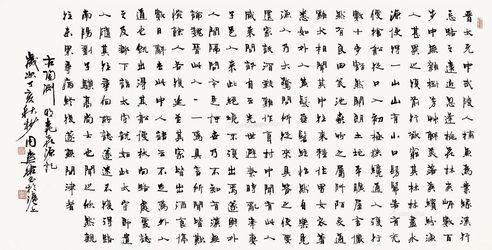 晉太元中武陵人捕魚為業緣溪行
忘路之遠近忽逢桃花林夾岸數百
步中無雜樹芳草鮮美落英繽紛漁
人甚異之復前行欲窮其林林盡水
源便得一山山有小口髣髴若有光
便捨船從口入初極狹纔通人復行
數十步豁然開朗土地平曠屋舍儼
然有良田美池桑竹之屬阡陌交通
雞犬相聞其中往來種作男女衣著
悉如外人黃髮垂髫並怡然自樂見
漁人乃大驚問所從來具答之便要
還家設酒殺雞作食村中聞有此人
咸來問訊自云先世避秦時亂率妻
子邑人來此絕境不復出焉遂與外
人間隔問今是何世乃不知有漢無
論魏晉此人一一為具言所聞皆歎
惋餘人各復延至其家皆出酒食停
數日辭去此中人語云不足為外人
道也既出得其船便扶向路處處誌
之及郡下詣太守說如此太守即遣
人隨其往尋向所誌遂迷不復得路
南陽劉子驥高尚士也聞之欣然規
往未果尋病終後遂無問津者
右陶淵明桃花源記
歲次丁亥秋杪周